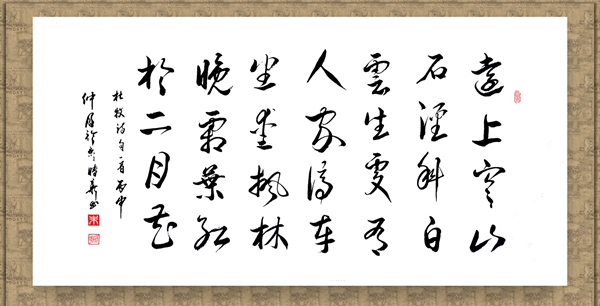 遠上寒山
石徑斜白
雲生處有
人家停車
坐愛楓林
晚霜葉紅
於二月花
杜牧詩一首丙申
仲夏